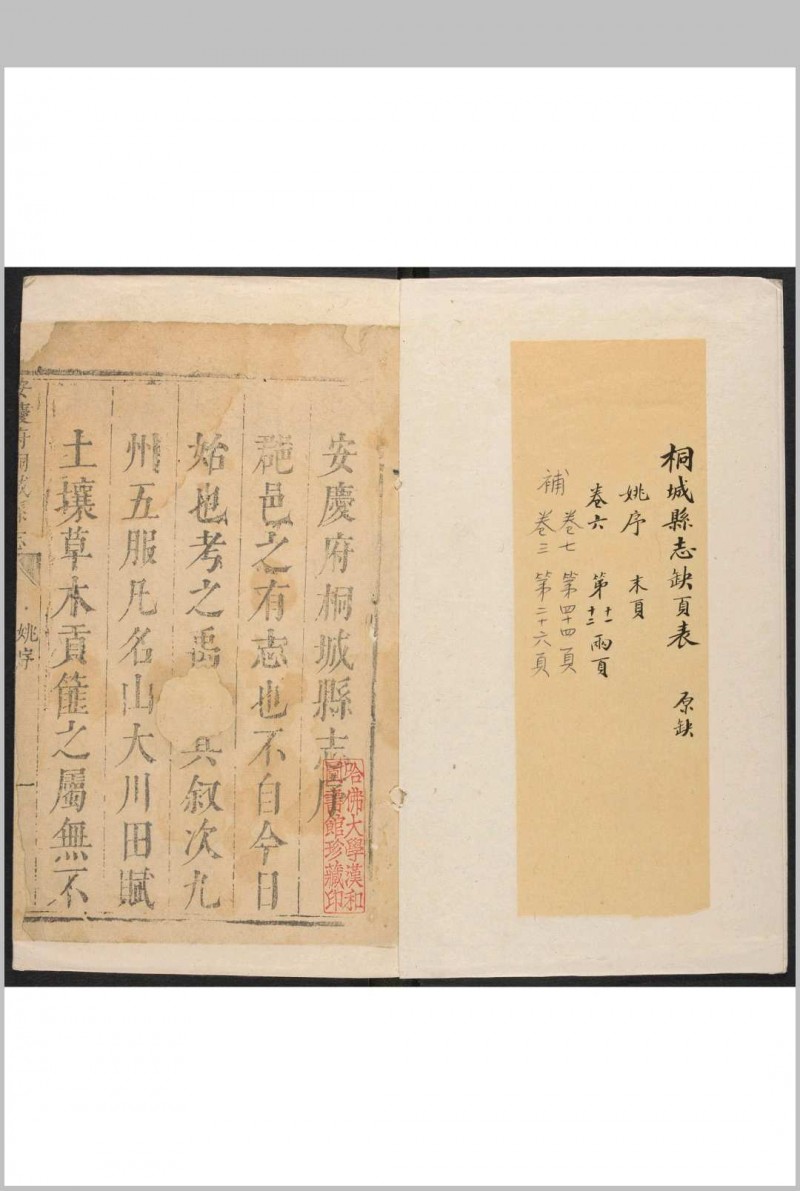 桐城縣志缺頁表 原缺
姚序 末頁
卷六 第十一十二兩頁
卷七 第四十四頁
補 卷三 第二十六頁
安慶府桐城縣志序
邑之有志也不自今日
始也考之禹 其叙次九
州五服凡名山大川田賦
土壤草木貢篚之屬無不
安慶府桐城縣志
姚序
一
哈佛大學漢和
圖書館珍藏印